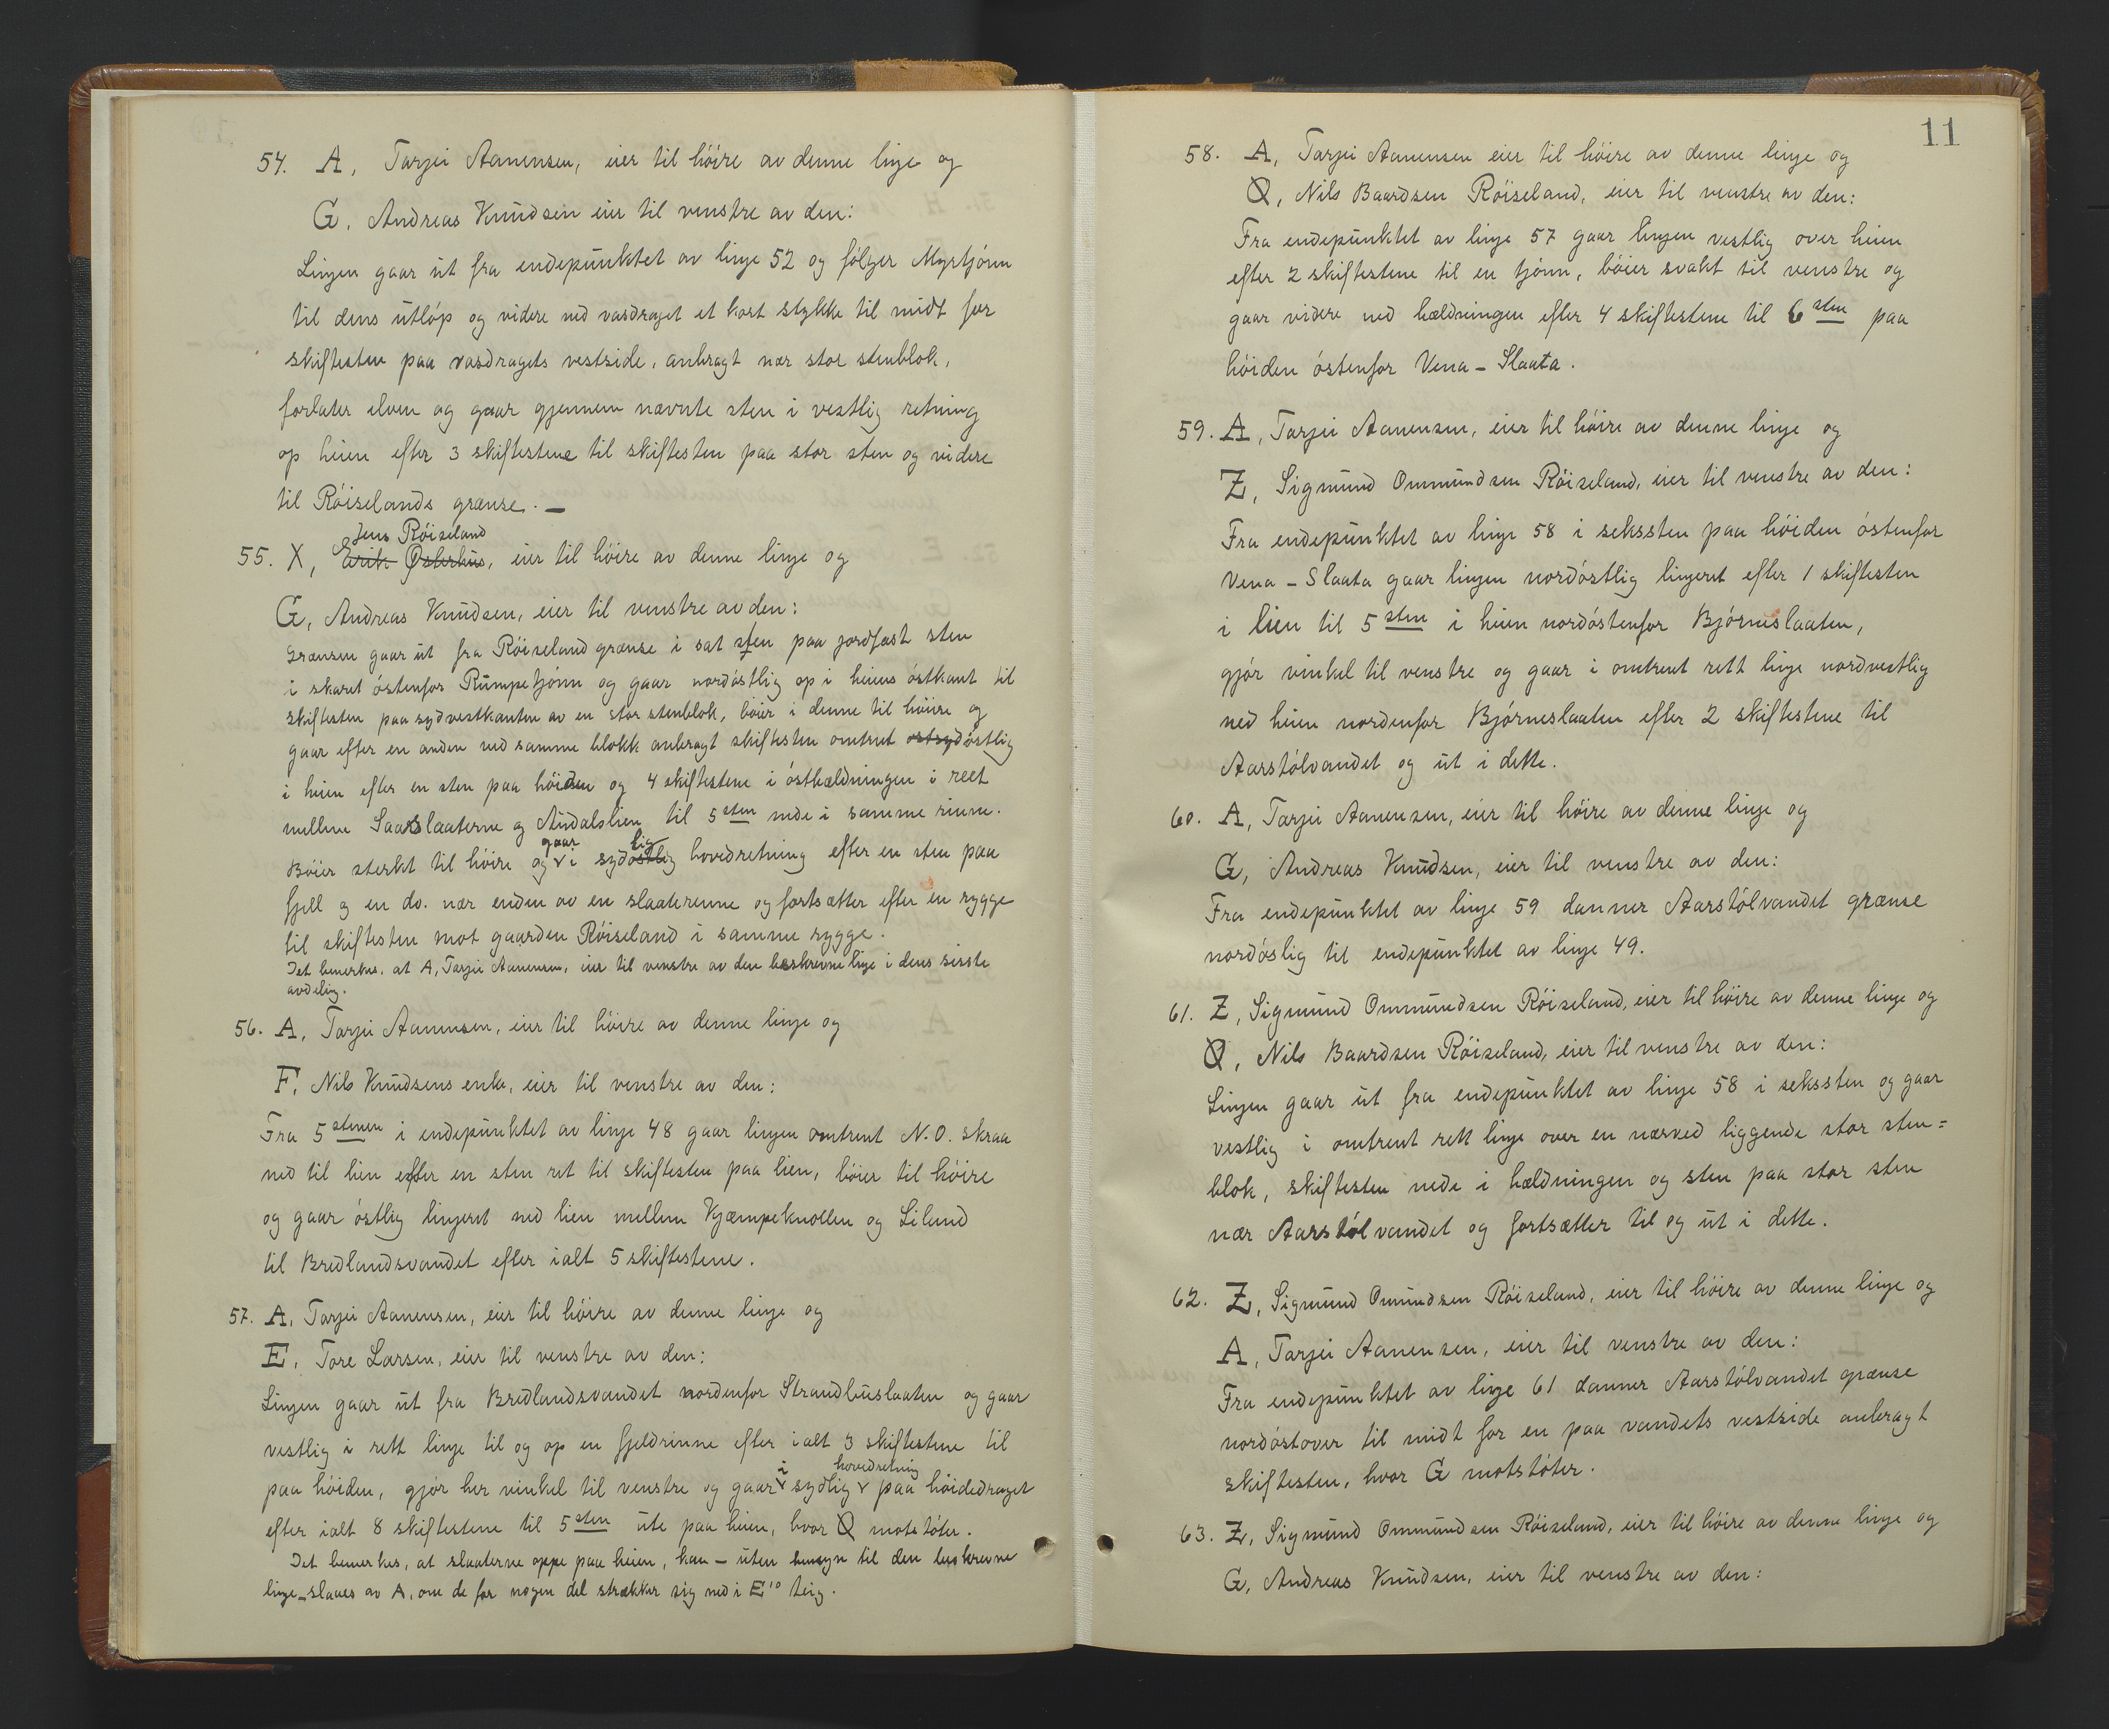 54. A, Tarjei Aanensen, eier til høire av denne linje og
G, Andreas Knudsen eier til venstre av den:
Linjen gaar ut fra endepunktet av linje 52 og følger Myrtjønn
til dens utløp og videre ned vasdraget et kort stykke til midt for
skiftesten paa vasdragets vestside, anbragt nær stor stenblok,
forlater elven og gaar gjennem nævnte sten i vestlig retning
op heien efter 3 skiftestene til skiftesten paa stor sten og videre
til Röiselands grænse. —
Jens Röiseland
55. X, Erik Østerhus, eier til høire av denne linje og
G, Andreas Knudsen, eier til venstre av den:
Grænsen gaar ut fra Röiseland grænse i sat sten paa jordfast sten
i skaret östenfor Rumpetjönn og gaar nordöstlig op i heiens östkant til
skiftesten paa sydvestkanten av en stor stenblok, böier i denne til höire og
gaar efter en anden ved samme blokk anbragt skiftesten omtrent ostsydöstlig
i heien efter en sten paa höiden og 4 skiftestene i östhældningen i reet
mellem Saarslaaterne og Audalslien til 5 sten nede i samme rinne.
gaar lig
Böier sterkt til höire og i sydostlig hovedretning efter en sten paa
fjell og en do. nær enden av en slaaterenne og fortsætter efter en rygge
til skiftesten mot gaarden Röiseland i samme rygge.
Det bemerkes, at A, Tarjei Aanensen, eier til venstre av den beskrevne linje i dens sisste
avdeling.
56. A, Tarjei Aanensen, eier til höire av denne linje og
F, Nils Knudsens enke, eier til venstre av den:
Fra 5 stenen i endepunktet av linje 48 gaar linjen omtrent N.O. skraa
ned til lien efter en sten ret til skiftesten paa lien, böier til höire
og gaar östlig linjeret ned lien mellem Kjæmpeknollen og Lilund
til Bredlandsvandet efter ialt 5 skiftestene.
57. A, Tarjei Aanensen, eier til höire av denne linje og
E, Tore Larsen, eier til venstre av den:
Linjen gaar ut fra Bredlandsvandet nordenfor Strandhuslaaten og gaar
vestlig i rett linje til og op en fjeldrinne efter ialt 3 skiftestene til
i hovedretning
paa höiden, gjör her vinkel til venstre og gaar sydlig paa höidedraget
efter ialt 8 skiftestene til 5 sten ute paa heien, hvor Q motstöter.
Det bemerkes, at slaaterne oppe paa heien, kan – uten hensyn til den beskrevne
linje – slaaes av A, om de for nogen del strækker sig ned i E¹⁰ teig.
11
58. A, Tarjei Aanensen eier til höire av denne linje og
Q, Nils Baardsen Röiseland, eier til venstre av den:
Fra endepunktet av linje 57 gaar linjen vestlig over heien
efter 2 skiftestene til en tjönn, böier svakt til venstre og
gaar videre ned hældningen efter 4 skiftestene til 6 sten paa
höiden östenfor Vena – Slaata.
59. A, Tarjei Aanensen, eier til höire av denne linje og
Z, Sigmund Ommundsen Röiseland, eier til venstre av den:
Fra endepunktet av linje 58 i seksten paa höiden östenfor
Vena – Slaata gaar linjen nordöstlig linjeret efter 1 skiftesten
i lien til 5 sten i heien nordöstenfor Björneslaaten,
gjör vinkel til venstre og gaar i omtrent rett linje nordvestlig
ned heien nordenfor Björneslaaten efter 2 skiftestene til
Aarstölvandet og ut i dette.
60. A, Tarjei Aanensen, eier til höire av denne linje og
G, Andreas Knudsen, eier til venstre av den:
Fra endepunktet av linje 59 danner Aarstölvandet grænse
nordöslig til endepunktet av linje 49.
61. Z, Sigmund Ommundsen Röiseland, eier til höire av denne linje og
Q, Nils Baardsen Röiseland, eier til venstre av den:
Linjen gaar ut fra endepunktet av linje 58 i seksten og gaar
vestlig i omtrent rett linje over en nærved liggende stor sten=
blok, skiftesten nede i hældningen og sten paa stor sten
nær Aarstölvandet og fortsætter til og ut i dette.
62. Z, Sigmund Omundsen Röiseland, eier til höire av denne linje og
A, Tarjei Aanensen, eier til venstre av den:
Fra endepunktet av linje 61 danner Aarstölvandet grænse
nordöstover til midt for en paa vandets vestside anbragt
skiftesten, hvor G motstöter.
63. Z, Sigmund Ommundsen Röiseland, eier til höire av denne linje og
G, Andreas Knudsen, eier til venstre av den: